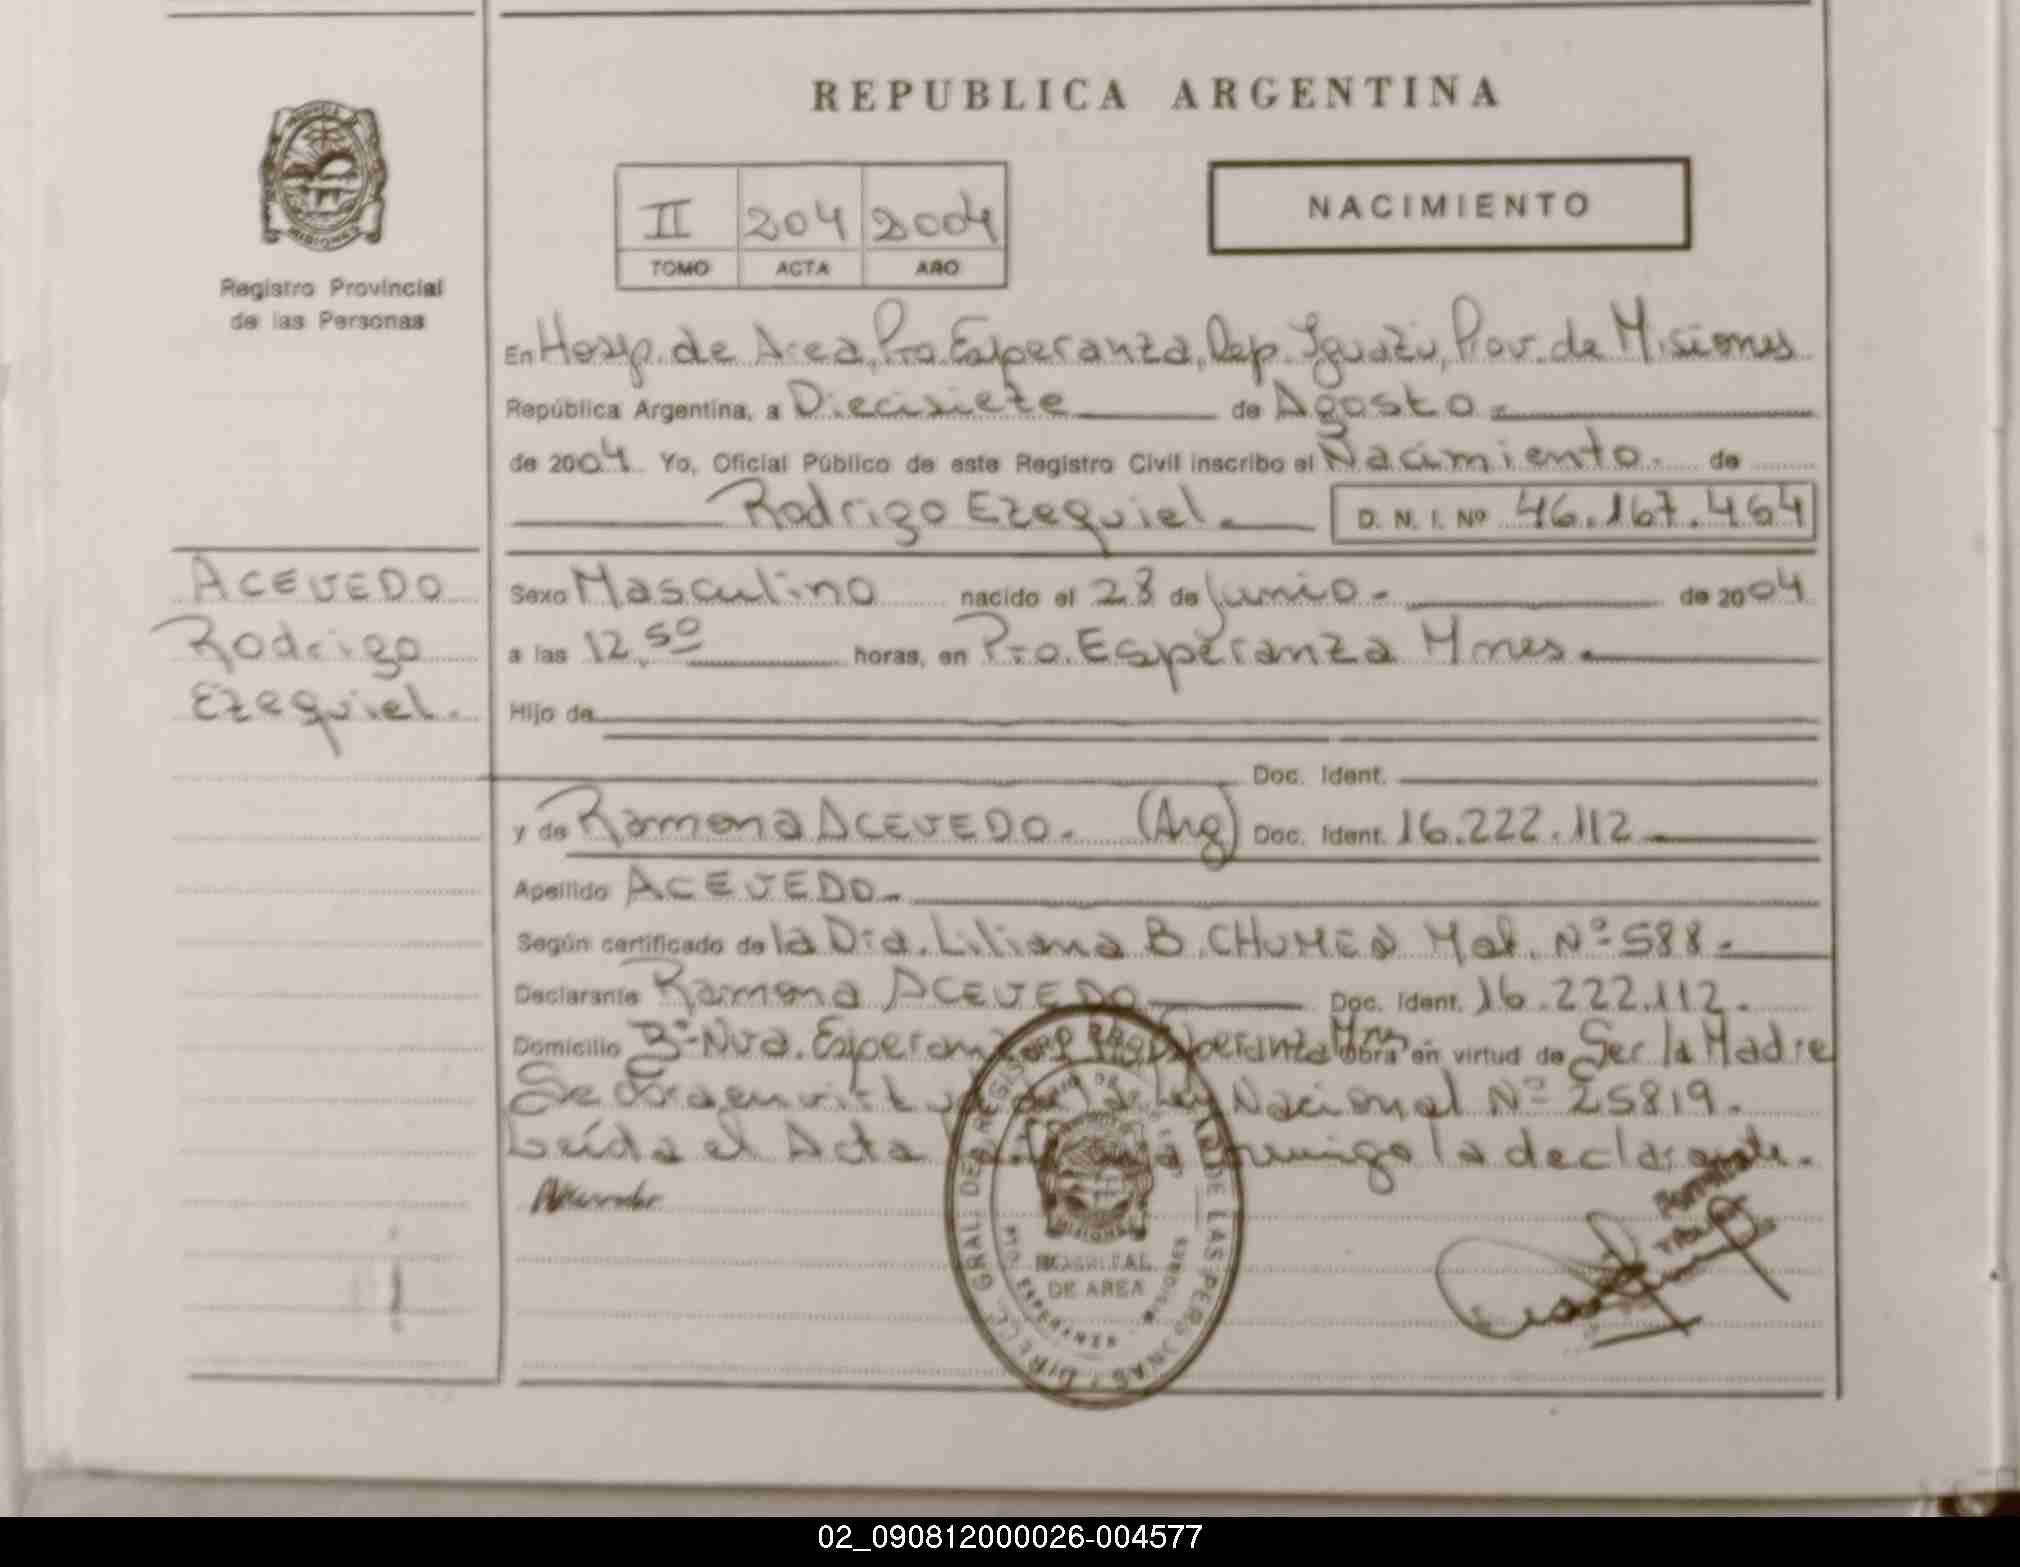 REPUBLICA ARGENTINA
MISIONES
Registro Provincial
de las Personas
II 204 2004
TOMO ACTA AÑO
NACIMIENTO
En Hosp. de Area, Pto. Esperanza, Dep. Iguazú, Prov. de Misiones
República Argentina, a Diecisiete de Agosto
de 2004 Yo, Oficial Público de este Registro Civil inscribo el Nacimiento. de
Rodrigo Ezequiel. D. N. I. Nº 46.167.464
ACEVEDO
Rodrigo
Ezequiel.
Sexo Masculino nacido el 28 de Junio. de 2004
a las 12,50 horas, en Pto. Esperanza Mnes.
Hijo de
Doc. Ident.
y de Ramona ACEVEDO. (Arg) Doc. Ident. 16.222.112
Apellido ACEVEDO.
Según certificado de la Dra. Liliana B. CHUMEA Mat. Nº 588.
Declarante Ramona ACEVEDO Doc. Ident. 16.222.112.
Domicilio Bº Nva. Esperanza Pto. Esperanza Mnes Obra en virtud de Ser la Madre
Se Nacional Nº 25819.
Leída el Acta la declarante.
DIRECC. GRAL. DEL REGISTRO DE LAS PERSONAS
HOSPITAL
DE AREA
PTO. ESPERANZA
02_090812000026-004577